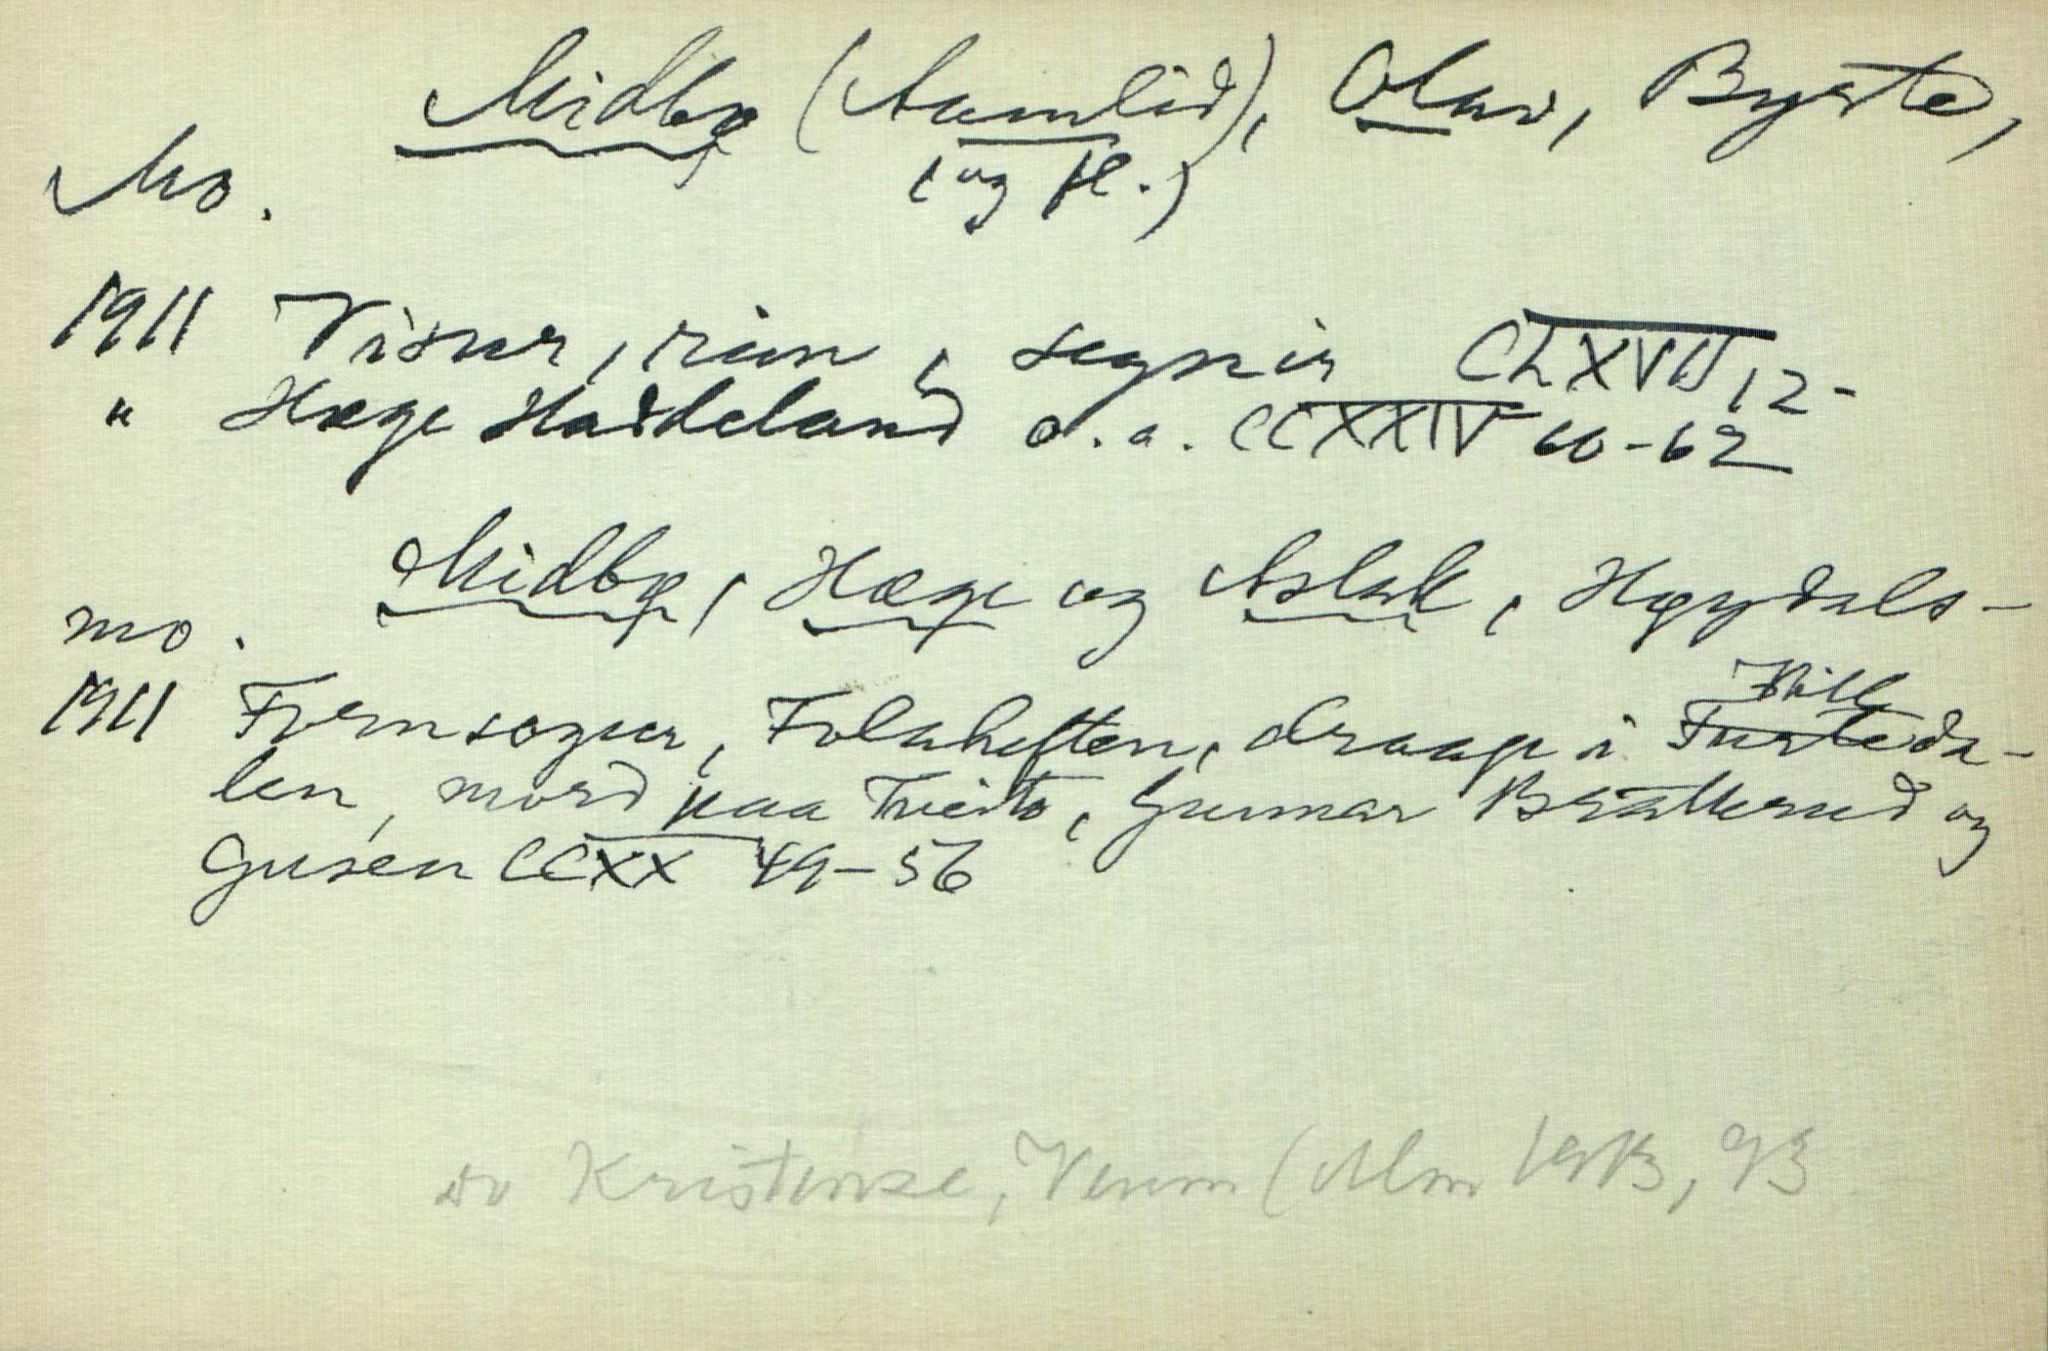 Midbø (Aamlid), Olav, Byrte,
(og fl.)
Mo.
1911 Visur, rim, segnir CLXVII, 2-
" Hæge Haddeland o.a. CCXXIV 60-62
Midbø, Hæge og Aslak, Høydals-
mo.
1911 Fornsogur, Folaheften, draap i Fuste
Hill
da-
len, mord paa Tveito, Gunnar Bratterud og
Gusen CCXX 49-56
Kristense, Venm (Alm 1913, 93